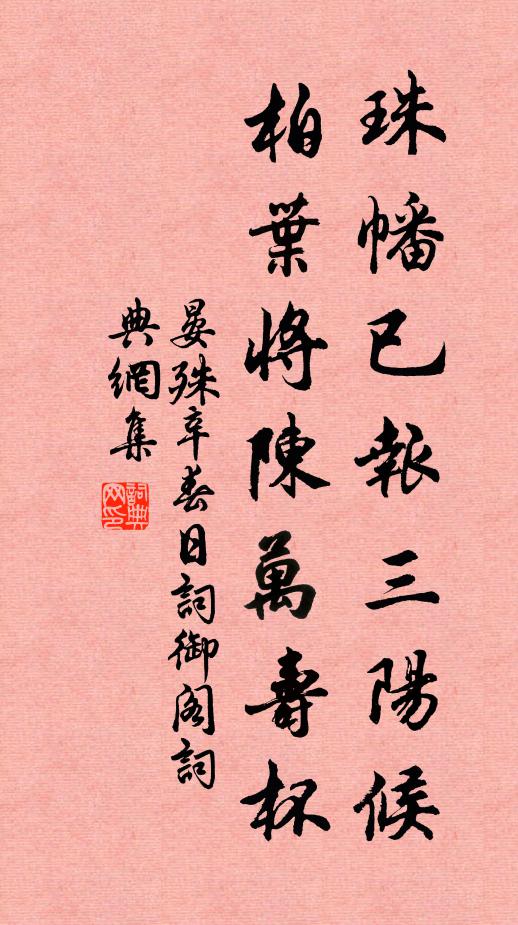 珠幡已報三陽候
柏葉將陳萬壽杯
晏殊辛春日詞御閣詞
典網集
詞典網印